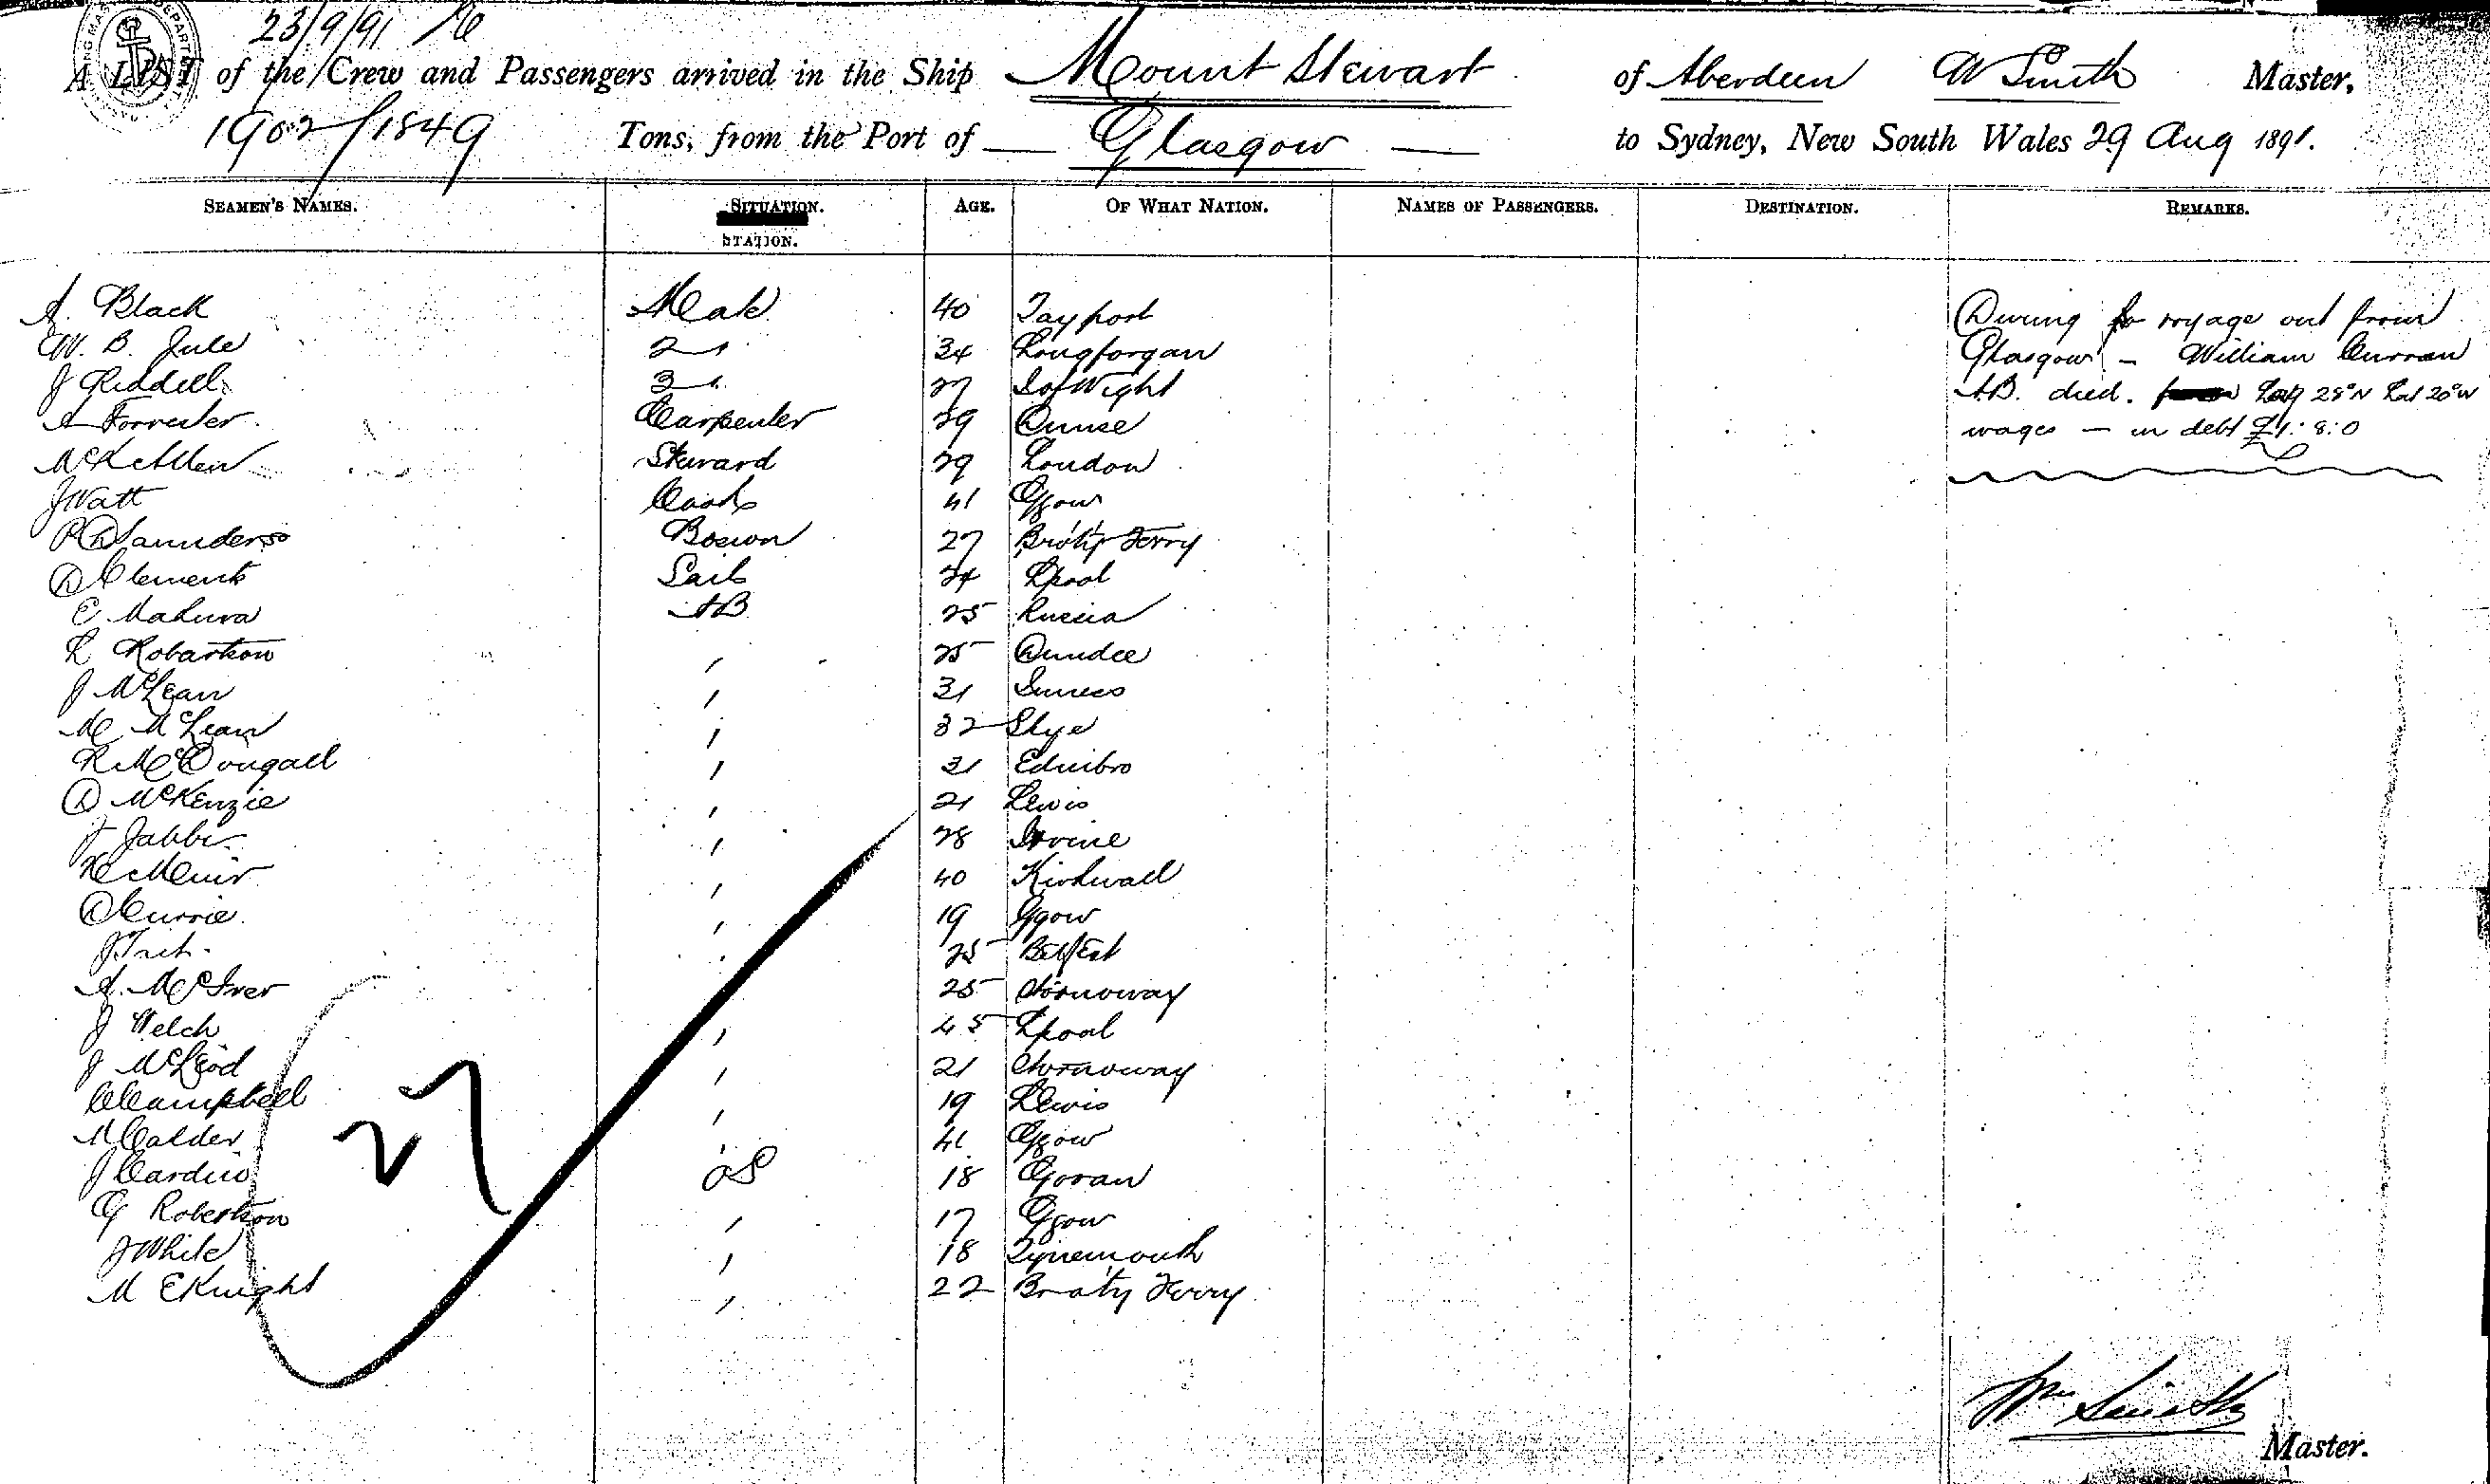 23/9/91
A LIST of the Crew and Passengers arrived in the Ship Mount Stewart of Aberdeen W Smith Master,
1902/1849 Tons, from the Port of Glasgow to Sydney, New South Wales 29 Aug 1891.
SEAMEN'S NAMES. SITUATION. STATION. AGE. OF WHAT NATION. NAMES OF PASSENGERS. DESTINATION. REMARKS.
A. Black Mate 40 Tayport
W. B. Jule 2 34 Longforgan
J Riddell 3 27 I of Wight
A Forrester Carpenter 29 Dunse
Steward 29 London
J Watt Cook 41 Ggow
R D Saunders Bosun 27 Broty Ferry
D Clements Sails 24 Lpool
E Madura AB 25 Russia
R Robertson 25 Dundee
J McLean 31 Inness
M McLean 32 Skye
R McDougall 31 Edinbro
D McKenzie 21 Lewis
28 Irvine
Muir 40 Kirkwall
D Currie 19 Ggow
25 Belfast
A. McIver 25 Stornoway
J Welch 45 Lpool
J McLeod 21 Stornoway
C Campbell 19 Lewis
M Calder 41 Ggow
J Cardno OS 18 Govan
G Robertson 17 Ggow
J White 18 Tynemouth
M E Knight 22 Broaty Ferry
27
During voyage out from
Glasgow - William Curran
AB. died. 28°N 20°W
wages - in debt £1:8:0
Wm Smith
Master.